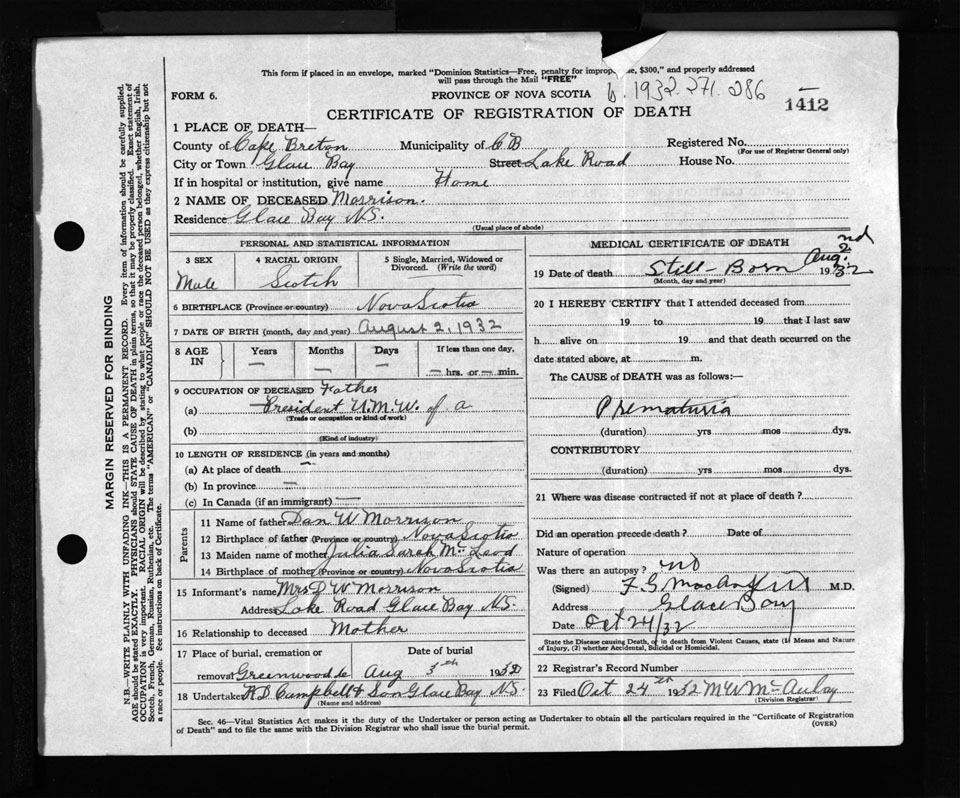 This form if placed in an envelope, marked "Dominion Statistics—Free, penalty for improp se, $300," and properly addressed
will pass through the Mail "FREE"
FORM 6.
PROVINCE OF NOVA SCOTIA
1932. 271. 286
1412
CERTIFICATE OF REGISTRATION OF DEATH
1 PLACE OF DEATH—
County of Cape Breton Municipality of C.B Registered No.
(For use of Registrar General only)
City or Town Glace Bay Street Lake Road House No.
If in hospital or institution, give name Home
2 NAME OF DECEASED Morrison.
Residence Glace Bay N.S.
(Usual place of abode)
PERSONAL AND STATISTICAL INFORMATION
3 SEX 4 RACIAL ORIGIN 5 Single, Married, Widowed or
Divorced. (Write the word)
Male Scotch
6 BIRTHPLACE (Province or country) Nova Scotia
7 DATE OF BIRTH (month, day and year) August 2, 1932
8 AGE IN Years Months Days If less than one day,
— — — — hrs. or — min.
9 OCCUPATION OF DECEASED Father
(a) President U.M.W. of a
(Trade or occupation or kind of work)
(b)
(Kind of industry)
10 LENGTH OF RESIDENCE (in years and months)
(a) At place of death —
(b) In province —
(c) In Canada (if an immigrant) —
Parents
11 Name of father Dan W Morrison
12 Birthplace of father (Province or country) Nova Scotia
13 Maiden name of mother Julia Sarah McLeod
14 Birthplace of mother (Province or country) Nova Scotia
15 Informant's name Mrs D W Morrison
Address Lake Road Glace Bay N.S.
16 Relationship to deceased Mother
17 Place of burial, cremation or Date of burial
removal Greenwood Aug 3th 1932
18 Undertaker Campbell & Son Glace Bay N.S.
(Name and address)
MEDICAL CERTIFICATE OF DEATH
19 Date of death Still-Born Aug. 2nd 1932
(Month, day and year)
20 I HEREBY CERTIFY that I attended deceased from
19 to 19 that I last saw
h alive on 19 and that death occurred on the
date stated above, at m.
The CAUSE of DEATH was as follows:—
Prematuria
(duration) yrs mos dys.
CONTRIBUTORY
(duration) yrs mos dys.
21 Where was disease contracted if not at place of death?
Did an operation precede death? Date of
Nature of operation
Was there an autopsy? no
(Signed) M.D.
Address Glace Bay
Date Oct 24/32
State the Disease causing Death, or in death from Violent Causes, state (1) Means and Nature
of Injury, (2) whether Accidental, Suicidal or Homicidal.
22 Registrar's Record Number
23 Filed Oct 24th 1932 McAulay
(Division Registrar)
Sec. 46—Vital Statistics Act makes it the duty of the Undertaker or person acting as Undertaker to obtain all the particulars required in the "Certificate of Registration
of Death" and to file the same with the Division Registrar who shall issue the burial permit.
(OVER)
MARGIN RESERVED FOR BINDING
N.B.—WRITE PLAINLY WITH UNFADING INK—THIS IS A PERMANENT RECORD. Every item of information should be carefully supplied.
AGE should be stated EXACTLY. PHYSICIANS should STATE CAUSE OF DEATH in plain terms, so that it may be properly classified. Exact statement of
OCCUPATION is very important. RACIAL ORIGIN will be described by stating to what people or race the deceased person belonged, whether English, Irish,
Scotch, French, German, Russian, Ruthenian, etc. The terms "AMERICAN" or "CANADIAN" SHOULD NOT BE USED as they express citizenship but not
a race or people. See instructions on back of Certificate.